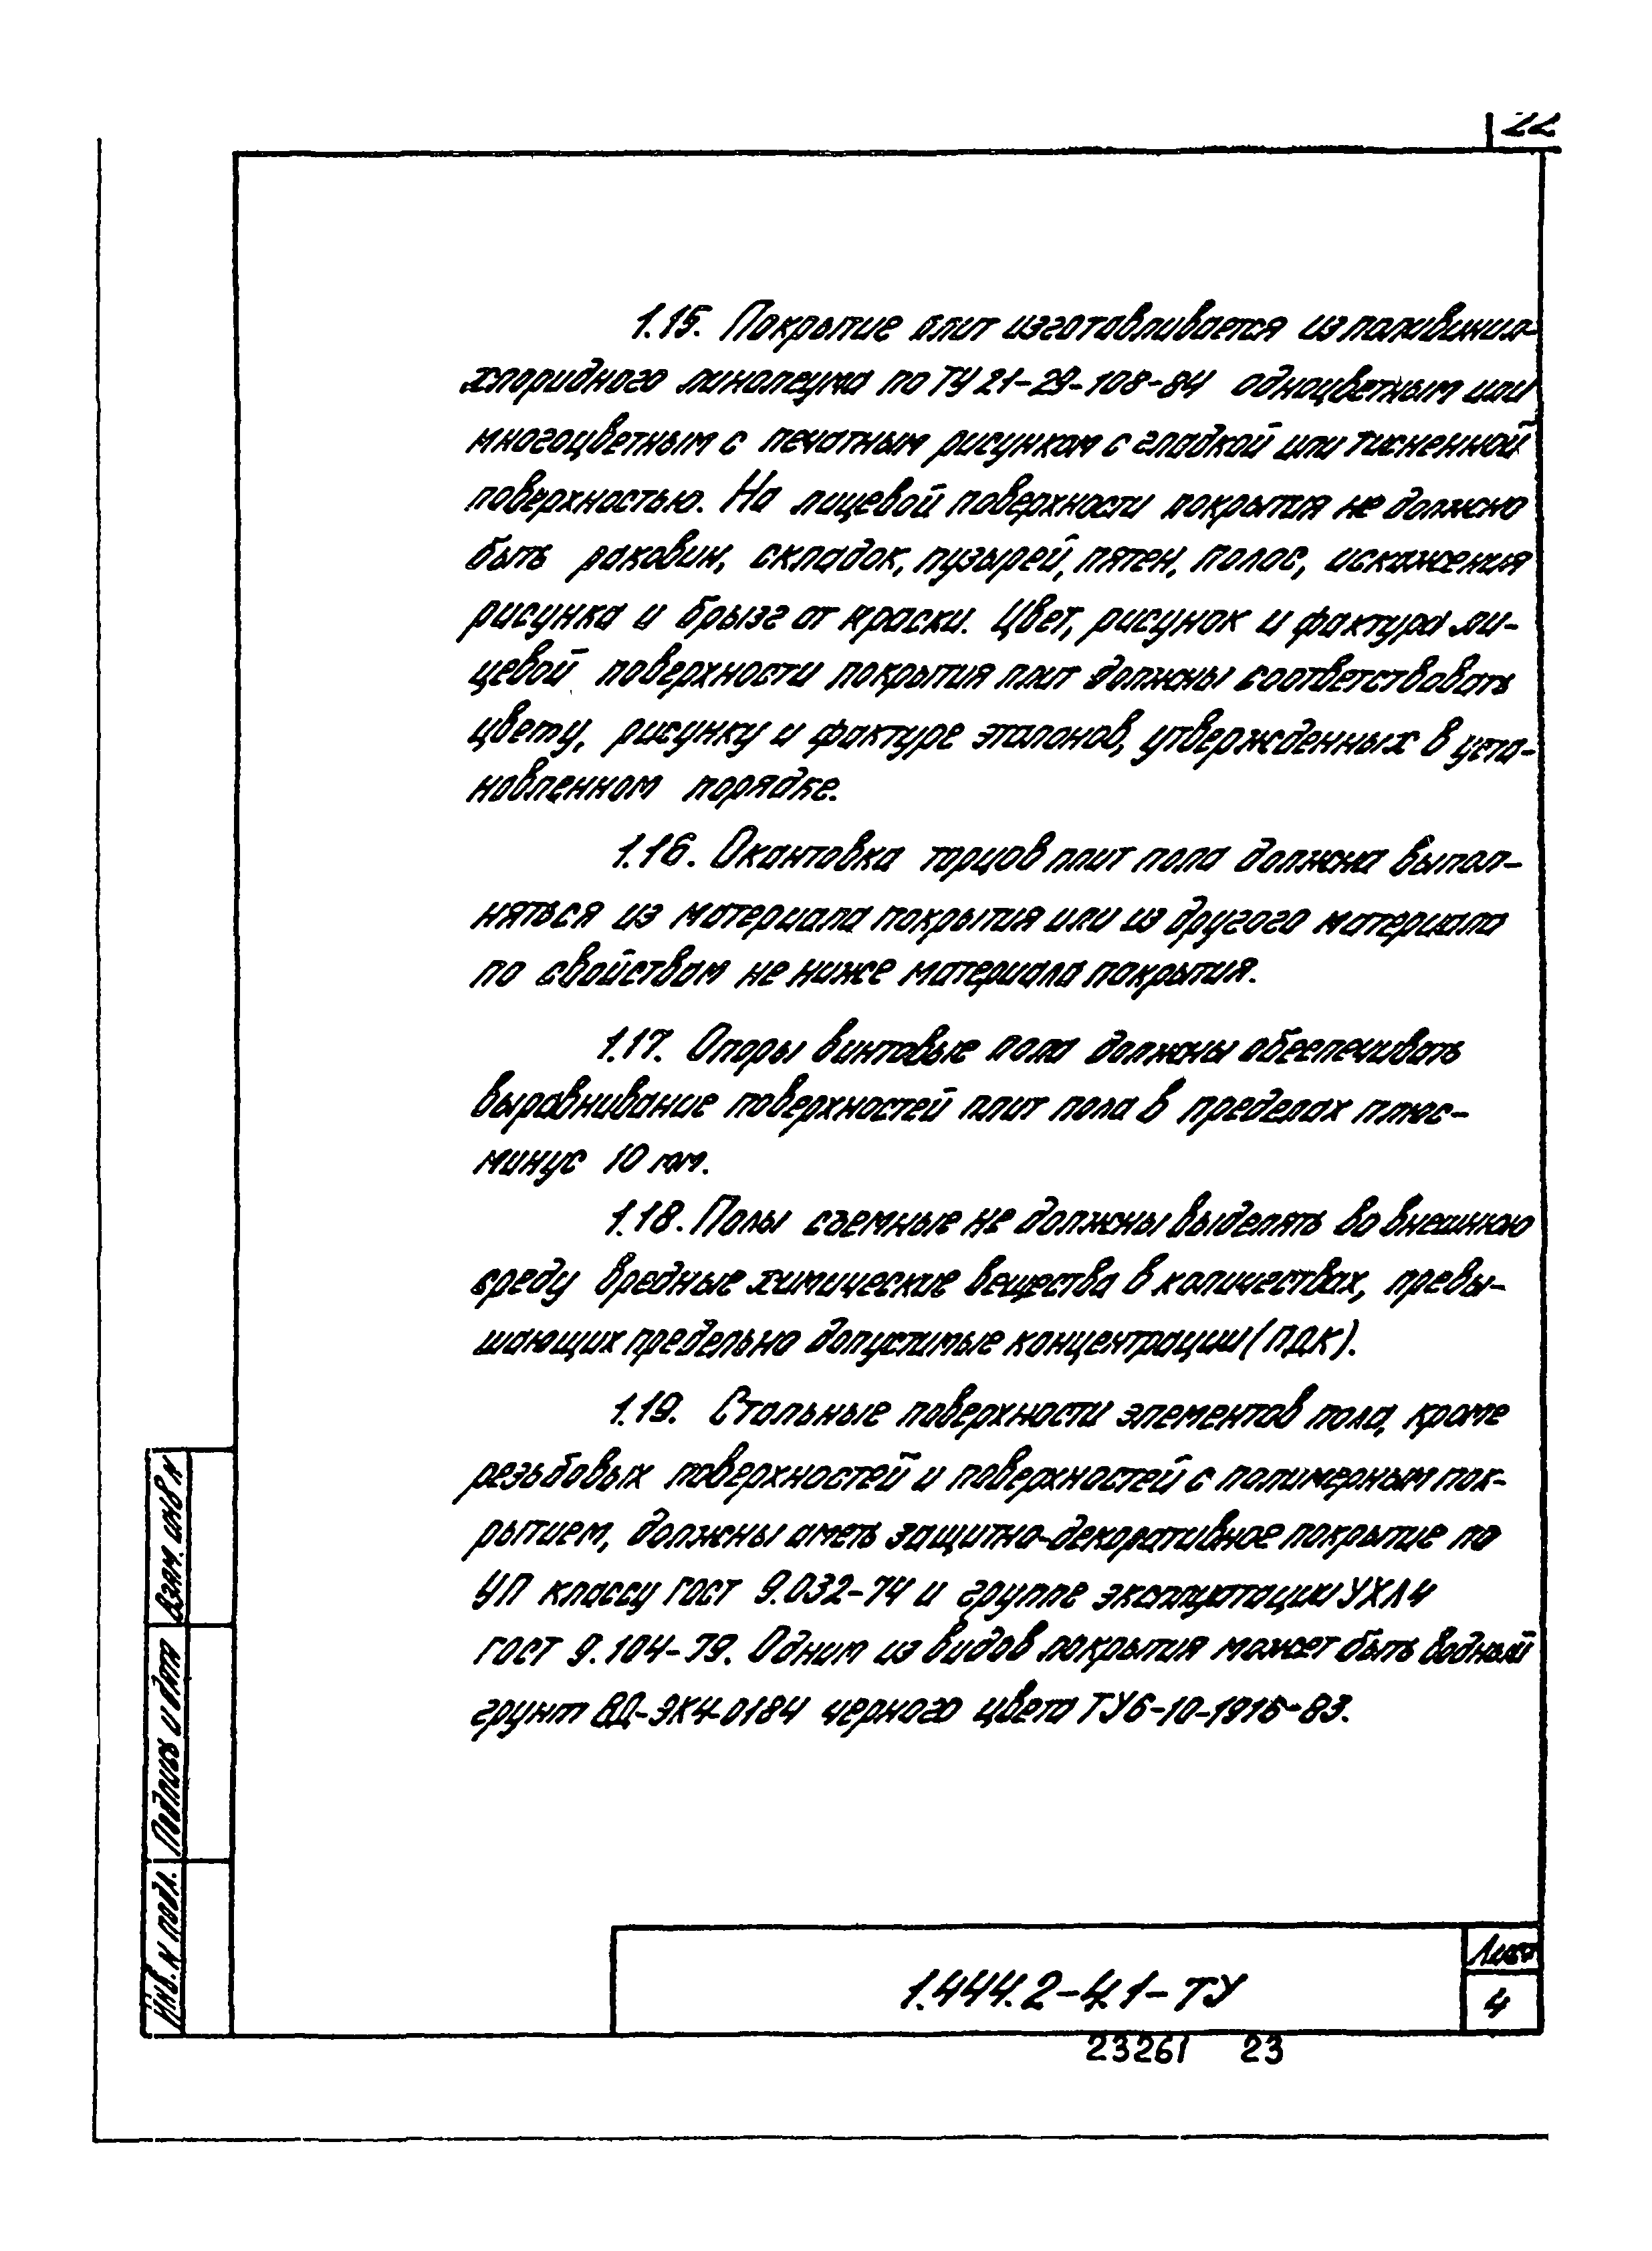 22
1.15. Покрытие плит изготавливается из поливинил-
хлоридного линолеума по ТУ 21-29-108-84 одноцветным или
многоцветным с печатным рисунком с гладкой или тисненной
поверхностью. На лицевой поверхности покрытия не должно
быть раковин, складок, пузырей, пятен, полос, искажения
рисунка и брызг от краски. Цвет, рисунок и фактура ли-
цевой поверхности покрытия плит должны соответствовать
цвету, рисунку и фактуре эталонов, утвержденных в уста-
новленном порядке.
1.16. Окантовка торцов плит пола должна выпол-
няться из материала покрытия или из другого материала
по свойствам не ниже материала покрытия.
1.17. Опоры винтовые пола должны обеспечивать
выравнивание поверхностей плит пола в пределах плюс-
минус 10 мм.
1.18. Полы съемные не должны выделять во внешнюю
среду вредные химические вещества в количествах, превы-
шающих предельно допустимые концентрации (ПДК).
1.19. Стальные поверхности элементов пола, кроме
резьбовых поверхностей и поверхностей с полимерным пок-
рытием, должны иметь защитно-декоративное покрытие по
УП классу ГОСТ 9.032-74 и группе эксплуатации УХЛ4
ГОСТ 9.104-79. Одним из видов покрытия может быть водный
грунт ВД-ЭК4-0184 черного цвета ТУ6-10-1915-83.
Взам. инв N
Подпись и дата
Инв. N подл.
1.444.2-4.1-ТУ
Лист
4
23261 23